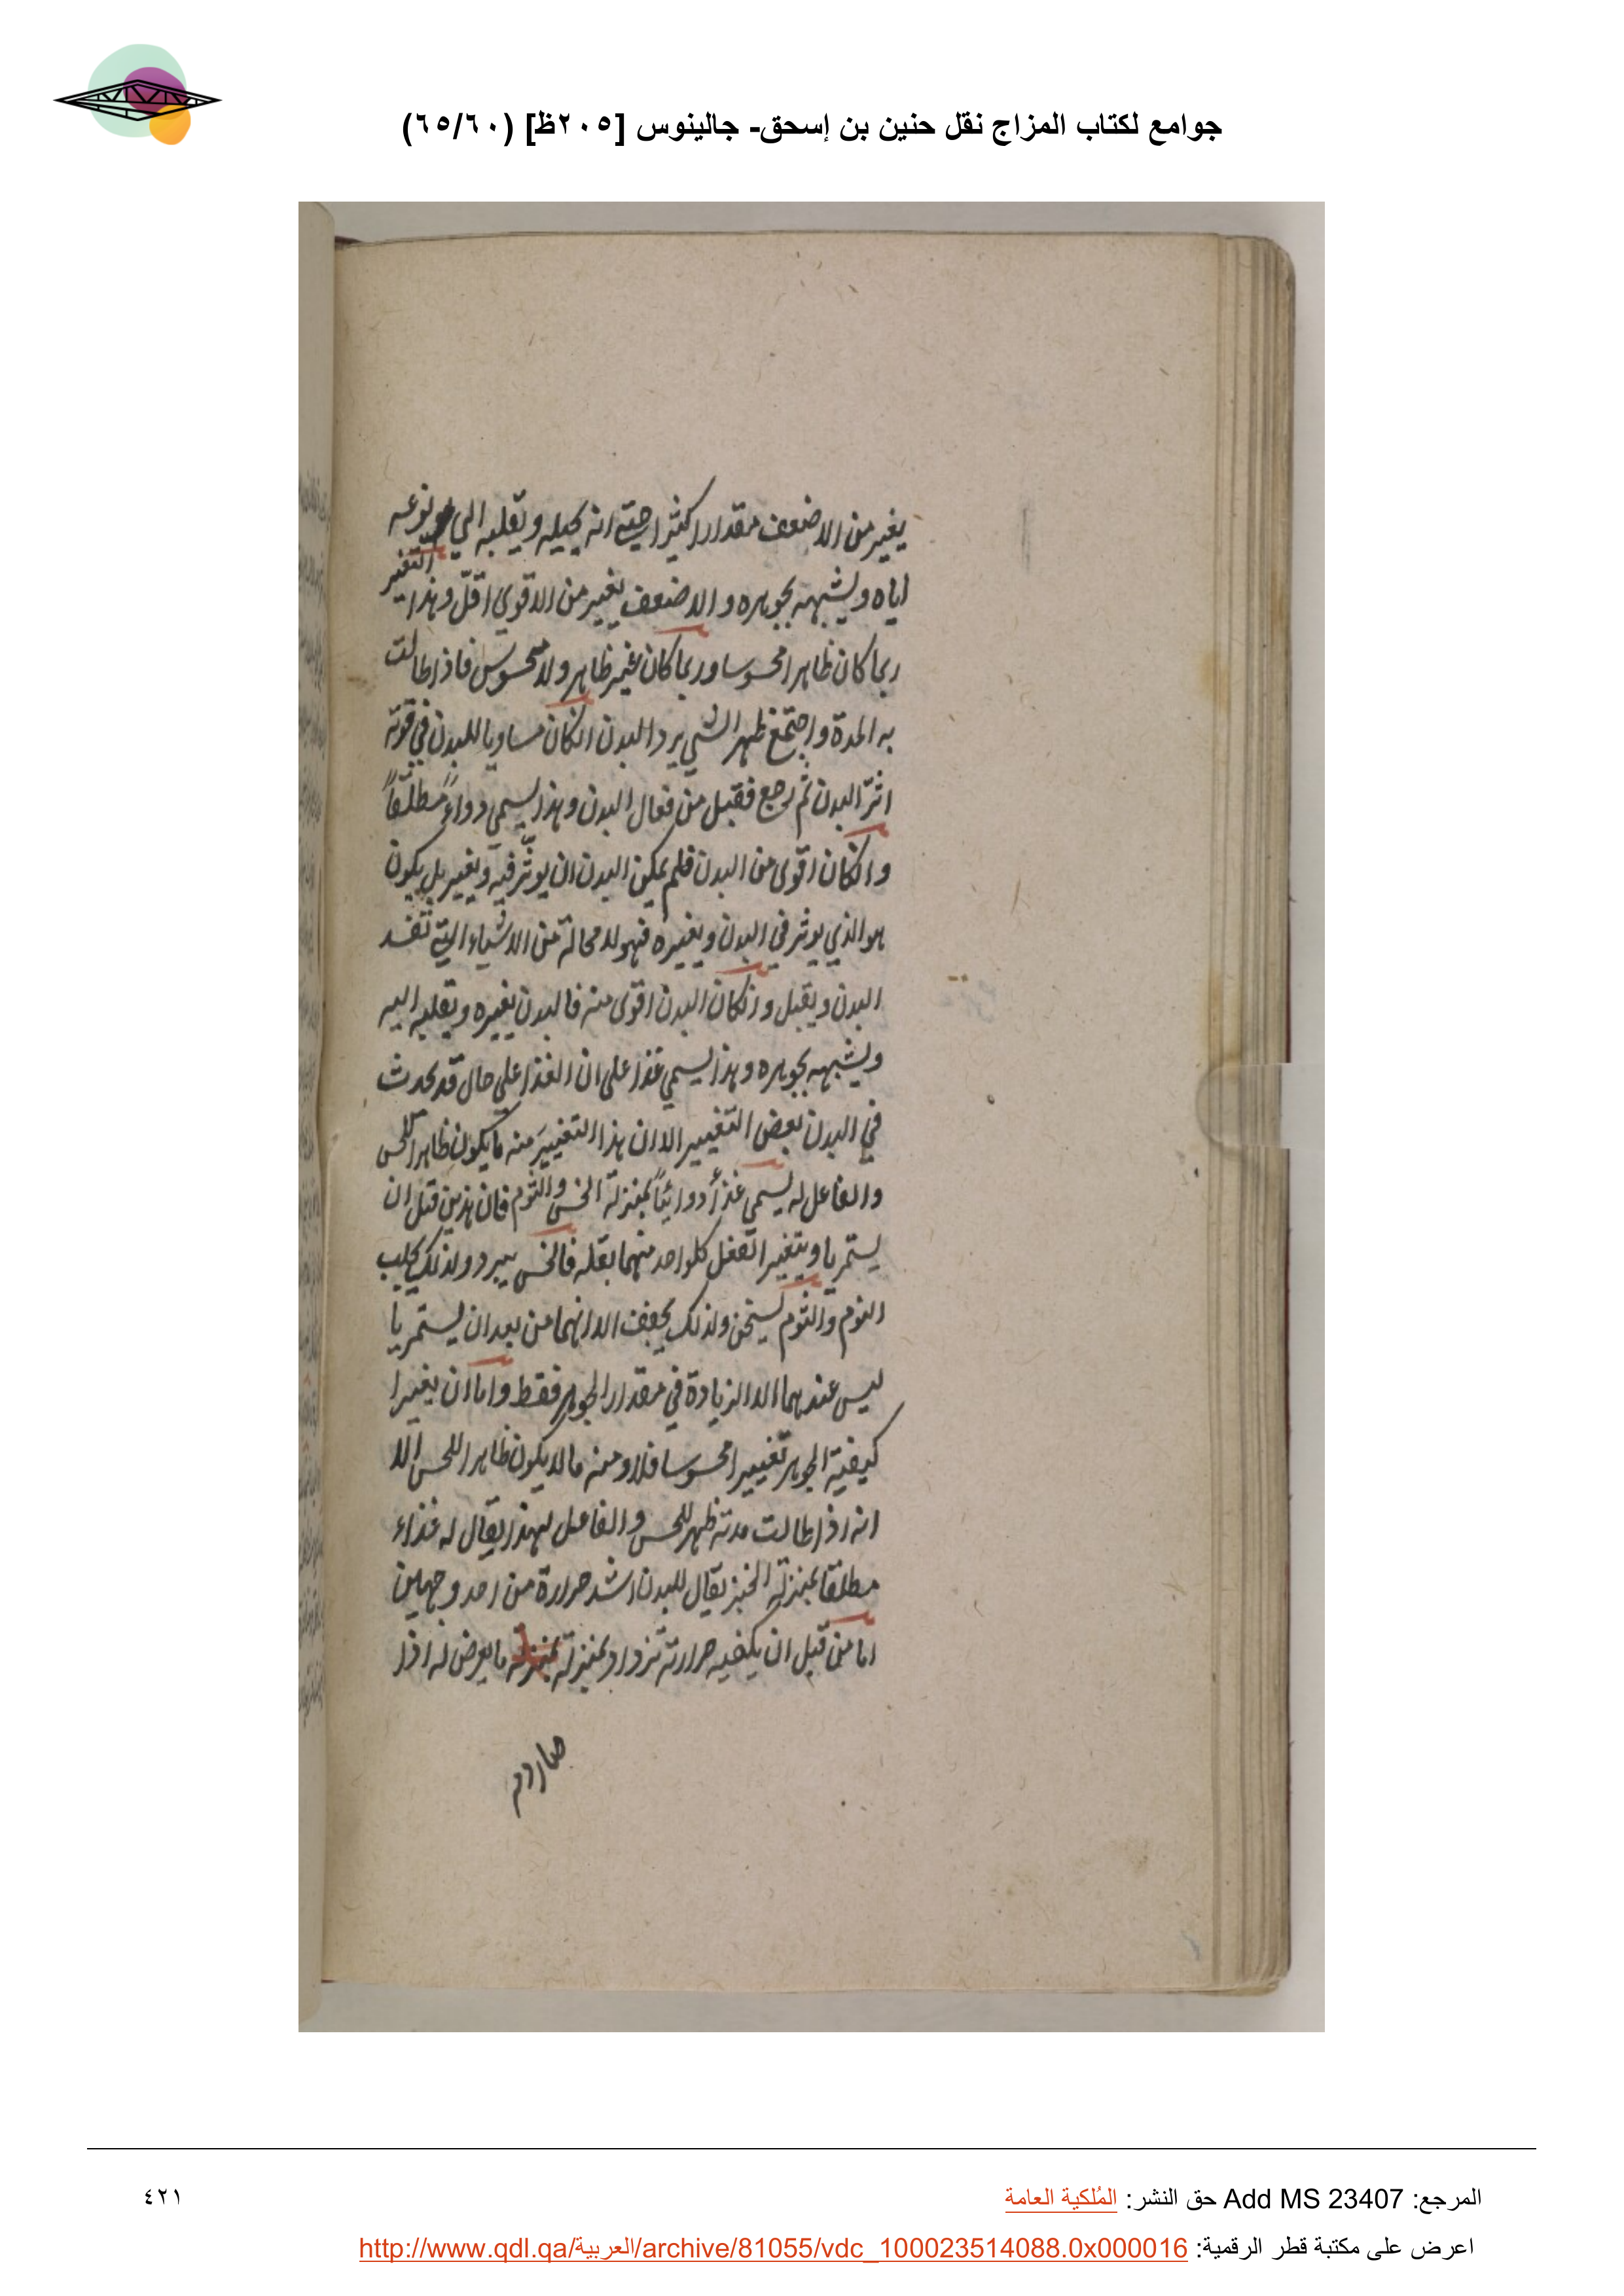 جوامع لكتاب المزاج نقل حنين بن إسحق- جالينوس [٢٠٥ظ] (٦٥/٦٠)
يغير من الاضعف مقدارا كثيرا حتى انه يحيله ويقلبه الي نوعه
اياه ويشبهه بجوهره والاضعف يغير من الاقوى اقلّ وهذا التغير
ربما كان ظاهرا محسوسا وربما كان غير ظاهر ولا محسوس فاذا طالت
به المدة واجتمع ظهر الشي يرد البدن انكان مساويا للبدن في قوته
اثرّ البدن ثم رجع فقبل من فعال البدن وهذا يسمي دواءً مطلقاً
وانكان اقوى من البدن فلم يمكن البدن ان يوثّر فيه ويغير بل يكون
هو الذي يوثر في البدن ويغيره فهو لا محالة من الاشياء التي تفسد
البدن ويقبل وانكان البدن اقوى منه فالبدن يغيره ويقلبه اليه
ويشبهه بجوهره وهذا يسمي غذا على ان الغذا علي حال قد يحدث
في البدن بعض التغيير الا ان هذا التغيير منه ما يكون ظاهرا للحس
والفاعل له يسمى غذأ دوائيّاً بمنزلة الخس والثوم فان هذين قبل ان
يستمريا ويتغيرا تفعل كلواحد منهما بفعله فالخس يبرد ولذلك يجلب
النوم والثوم يسخن ولذلك يجفف الا انهما من بعد ان يستمريا
ليس عندهما الا الزيادة في مقدار الجوهر فقط واما ان يغيرا
كيفية الجوهر تغييرا محسوسا فلا ومنه ما لا يكون ظاهرا للحس الا
انه اذا طالت مدته ظهر للحس والفاعل لهذا يقال له غذاء
مطلقا بمنزلة الخبز يقال للبدن اشد حرارة من احد وجهين
اما من قبل ان يكفيه حرارته تزداد بمنزلة بمنزلة ما يعرض له اذا
صار دم
المرجع: Add MS 23407 حق النشر: المُلكية العامة
٤٢١
اعرض على مكتبة قطر الرقمية: http://www.qdl.qa/العربية/archive/81055/vdc_100023514088.0x000016